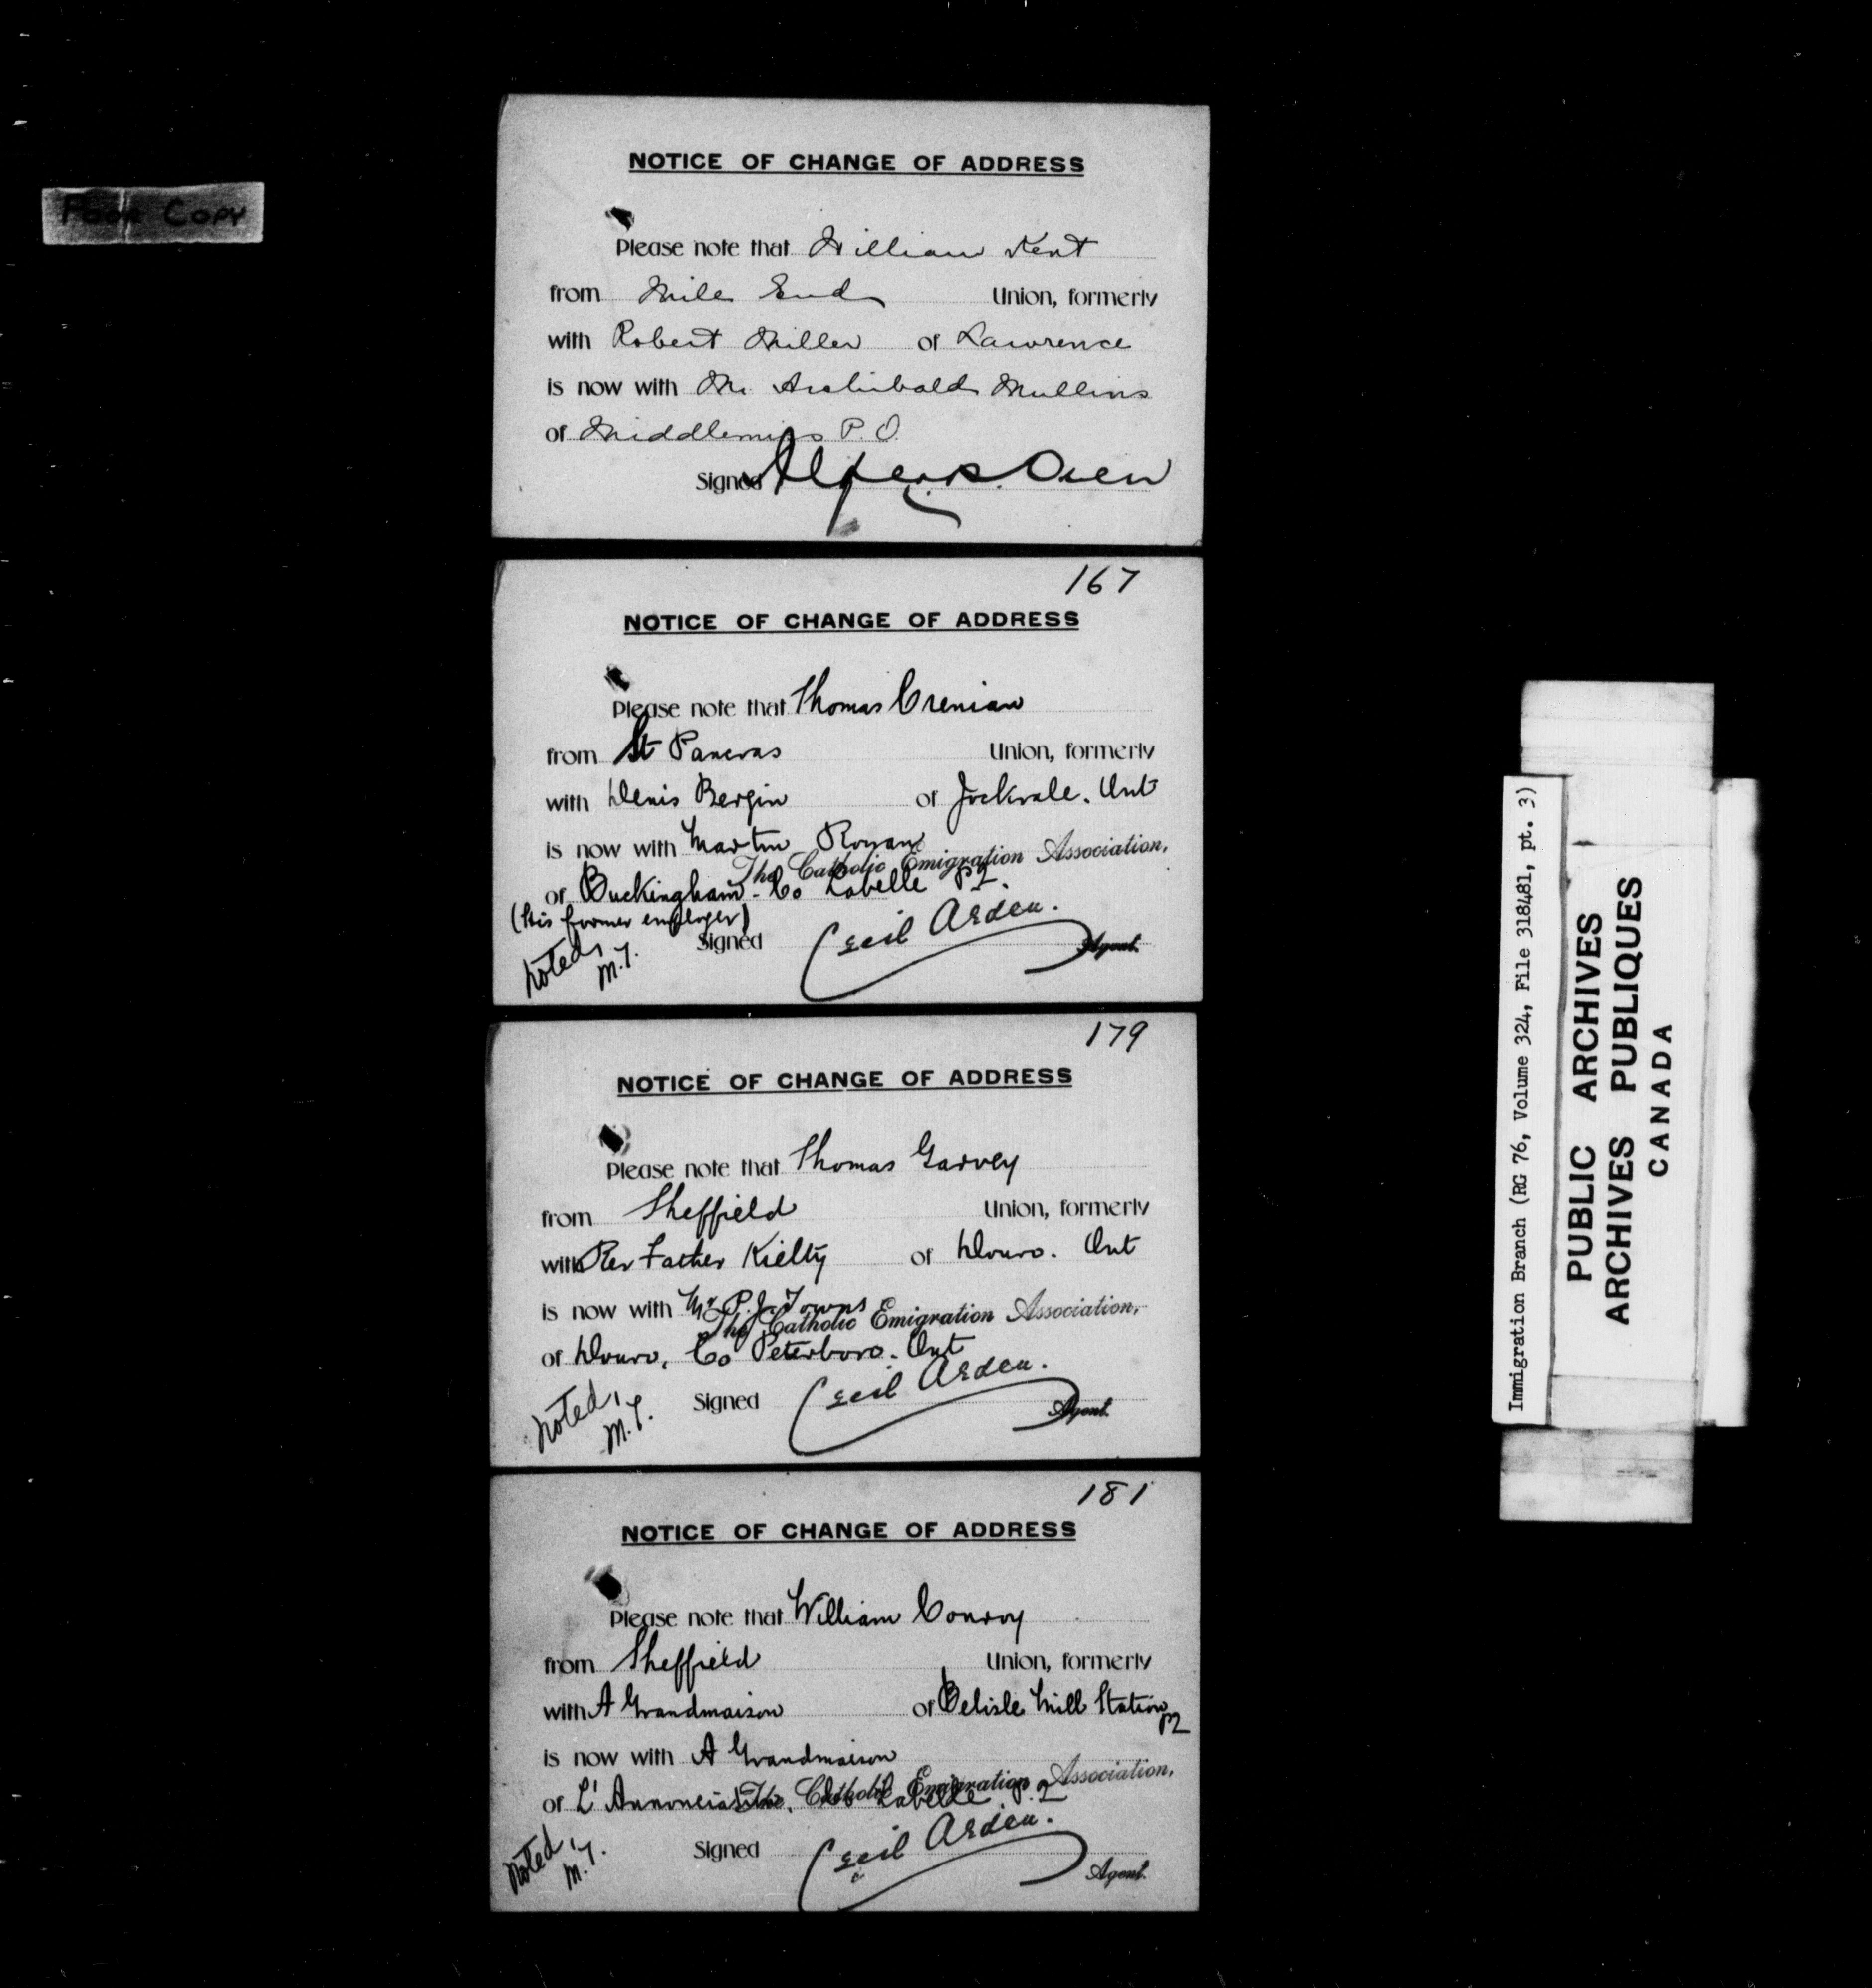 POOR COPY
NOTICE OF CHANGE OF ADDRESS
Please note that William Kent
from Mile End Union, formerly
with Robert Miller of Lawrence
is now with Mr. Archibald Mullins
of Middlemiss P.O.
Signed Owen
167
NOTICE OF CHANGE OF ADDRESS
Please note that Thomas Crenian
from St Pancras Union, formerly
with Denis Bergin of Jockvale. Ont
is now with Martin Ronan
The Catholic Emigration Association,
of Buckingham. Co Labelle PQ.
(his former employer)
Signed Cecil Arden.
Agent.
Noted,
M.T.
179
NOTICE OF CHANGE OF ADDRESS
Please note that Thomas Garvey
from Sheffield Union, formerly
with Rev Father Kielty of Douro. Ont
is now with Mr P. J. Towns
The Catholic Emigration Association,
of Douro, Co Peterboro. Ont
Signed Cecil Arden.
Agent.
Noted,
M.T.
181
NOTICE OF CHANGE OF ADDRESS
Please note that William Conroy
from Sheffield Union, formerly
with A Grandmaison of Belisle Mill Station
PQ
is now with A Grandmaison
The Catholic Emigration Association,
of L'Annonciation, Co Labelle P.Q
Signed Cecil Arden.
Agent.
Noted,
M.T.
Immigration Branch (RG 76, Volume 324, File 318481, pt. 3)
PUBLIC ARCHIVES
ARCHIVES PUBLIQUES
CANADA